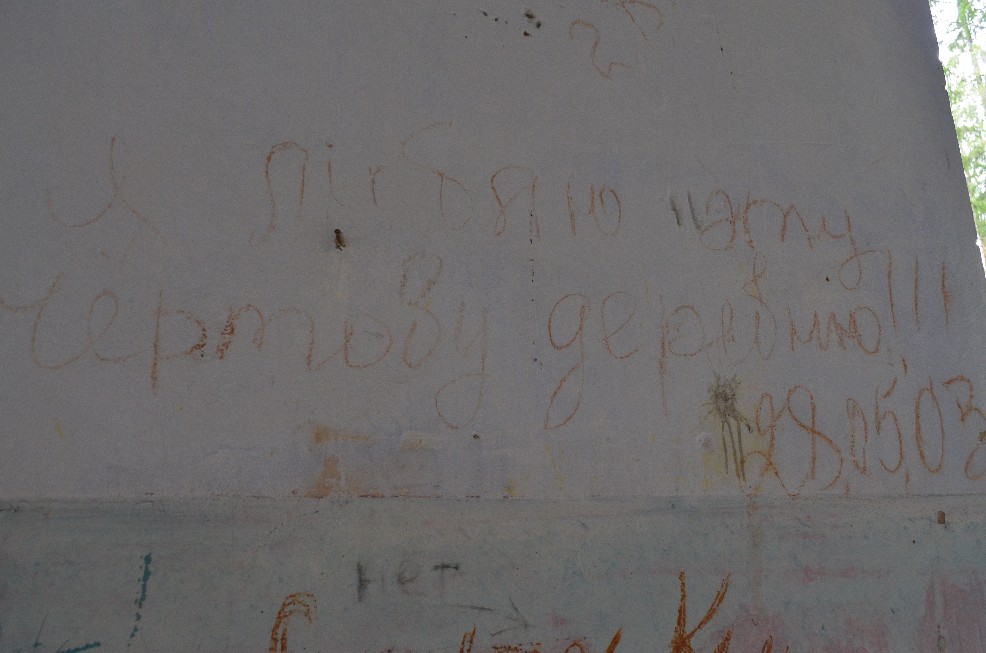 Я люблю эту
чертову деревню!!!
28.05.03
нет